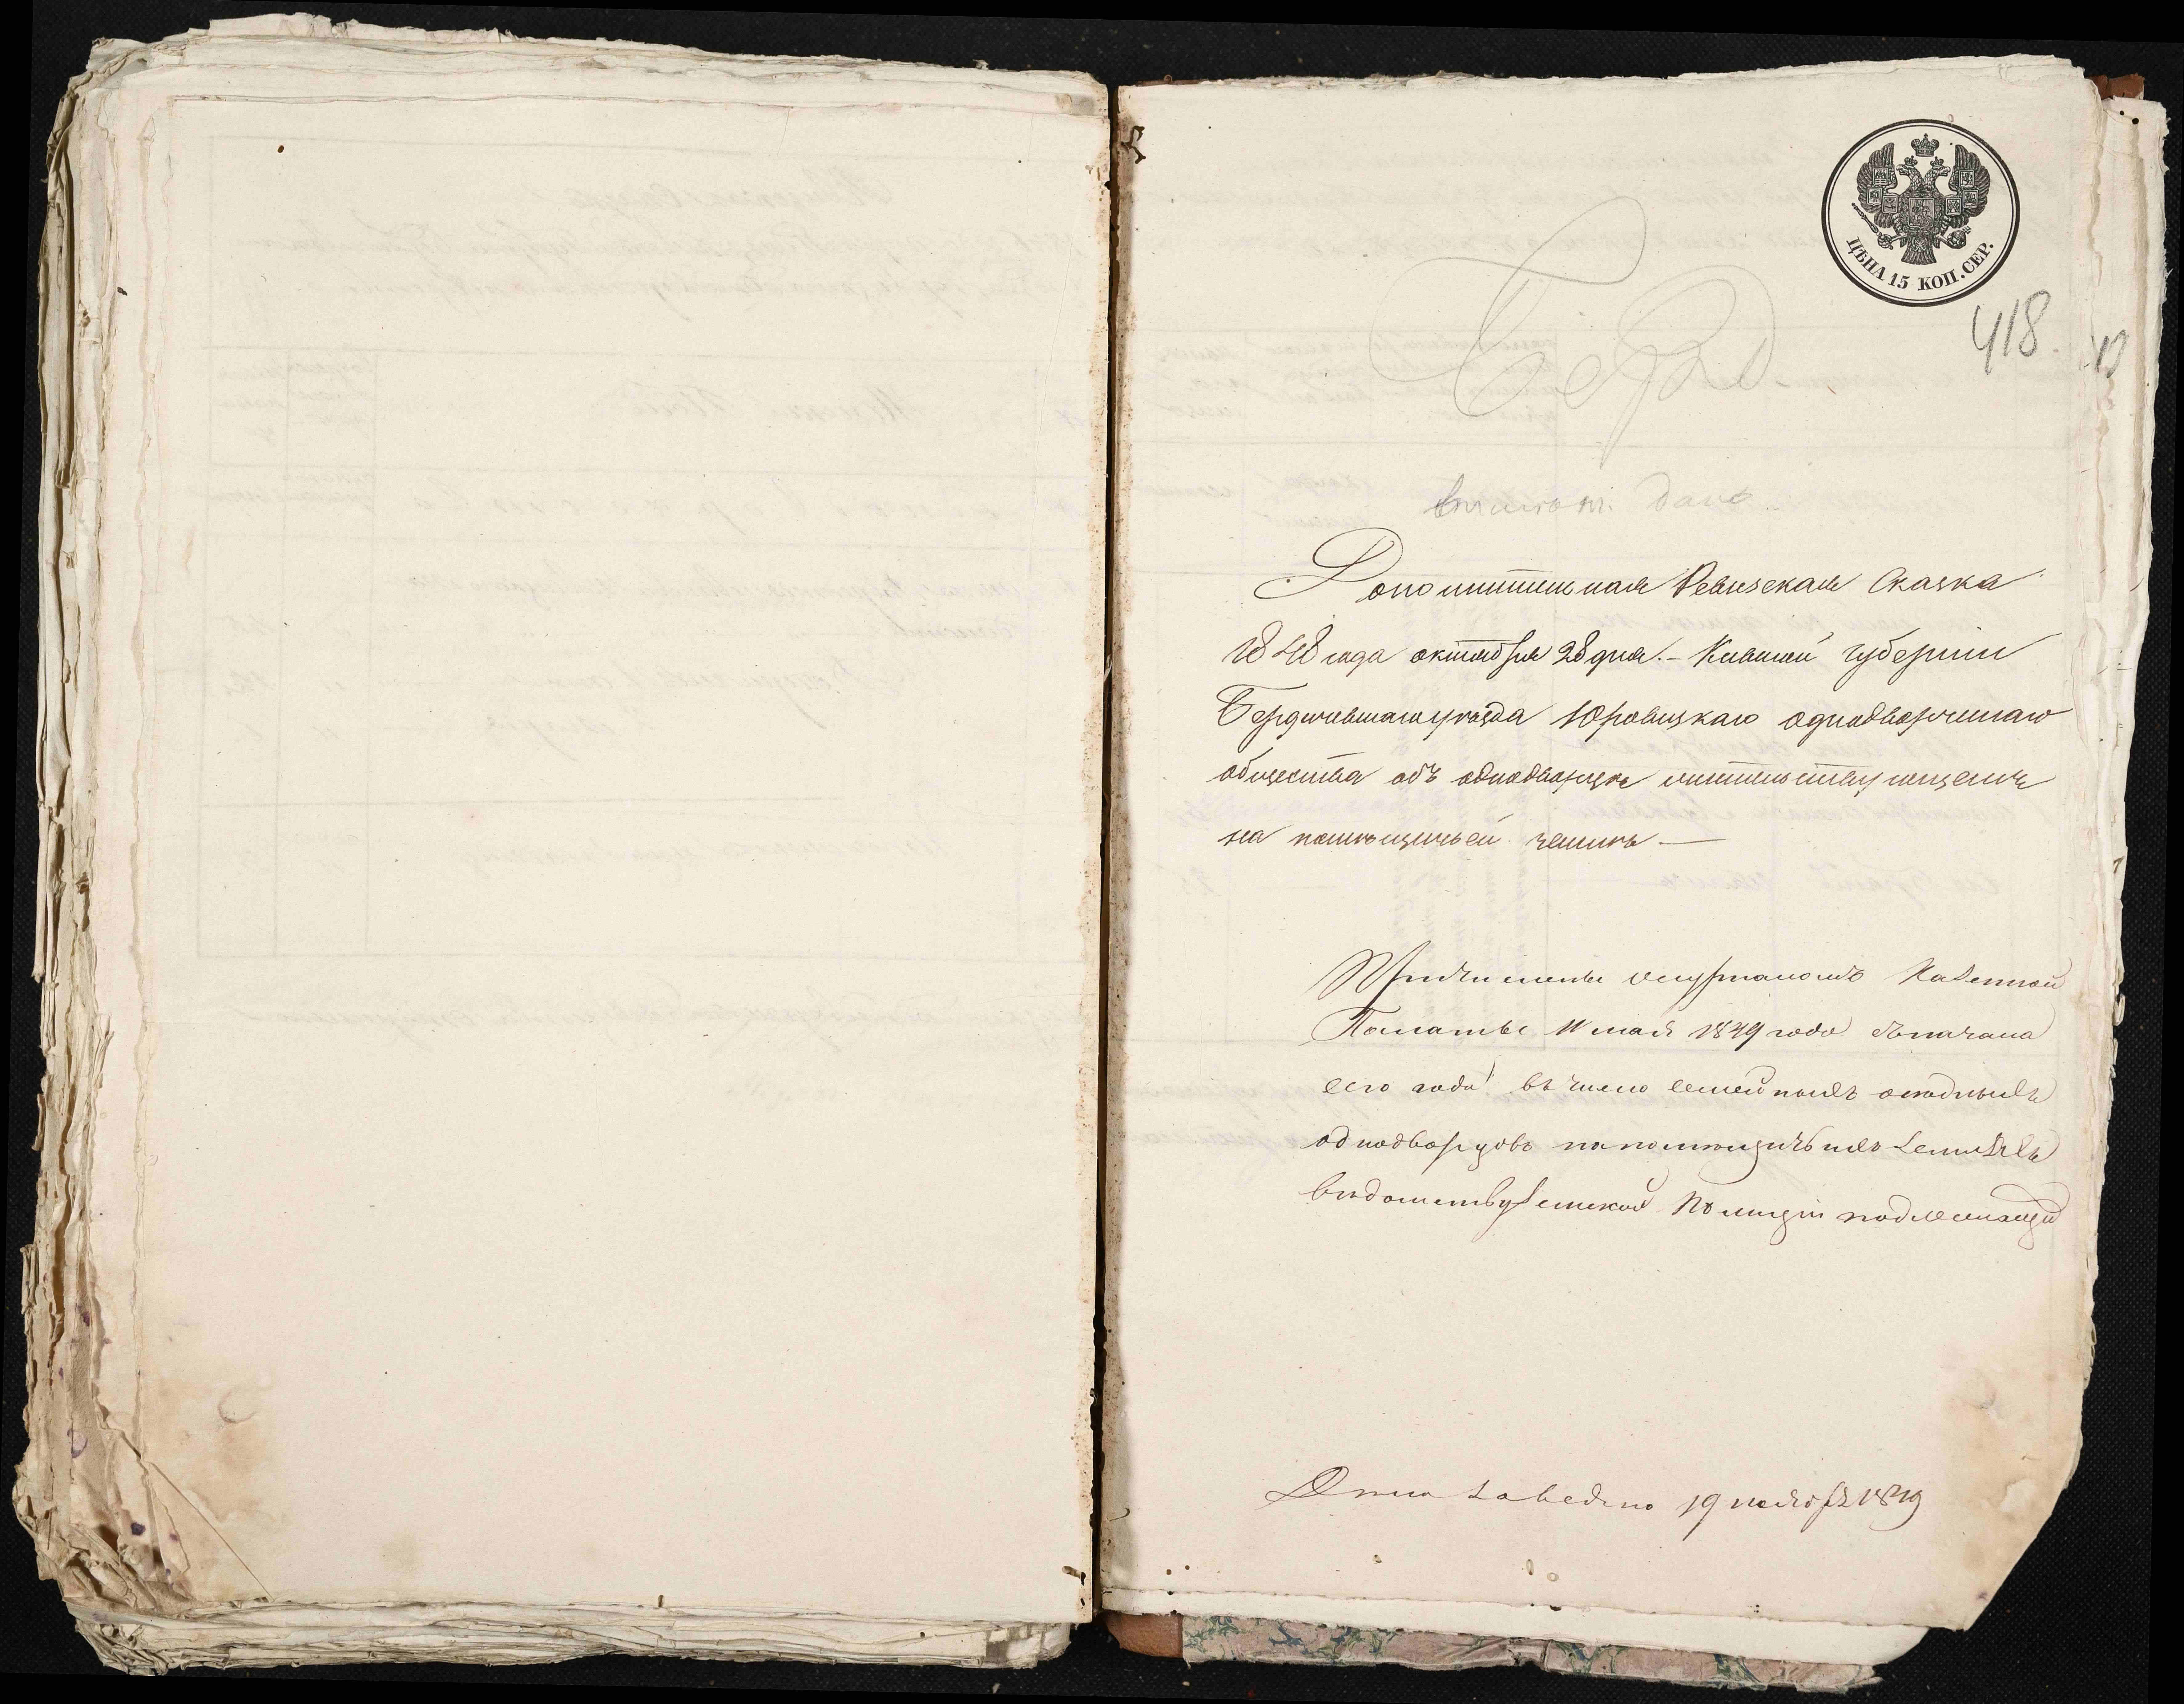 ЦѢНА 15 КОП. СЕР.
418
Бер
Дополнительная Ревизская Сказка
1848 года октября 28 дня. – Киевской губернии
Бердичевскаго уезда Юровецкаго однодворческаго
общества объ однодворце жительствующемъ
на помѣщичьей землѣ —
Причислены журналомъ Казенной
Палаты 11 мая 1849 года съ начала
сего года въ число семейныхъ
однодворцовъ на помѣщичьихъ земляхъ
вѣдомству земской Полиціи подлежащи
заведено 19 ноября 1849